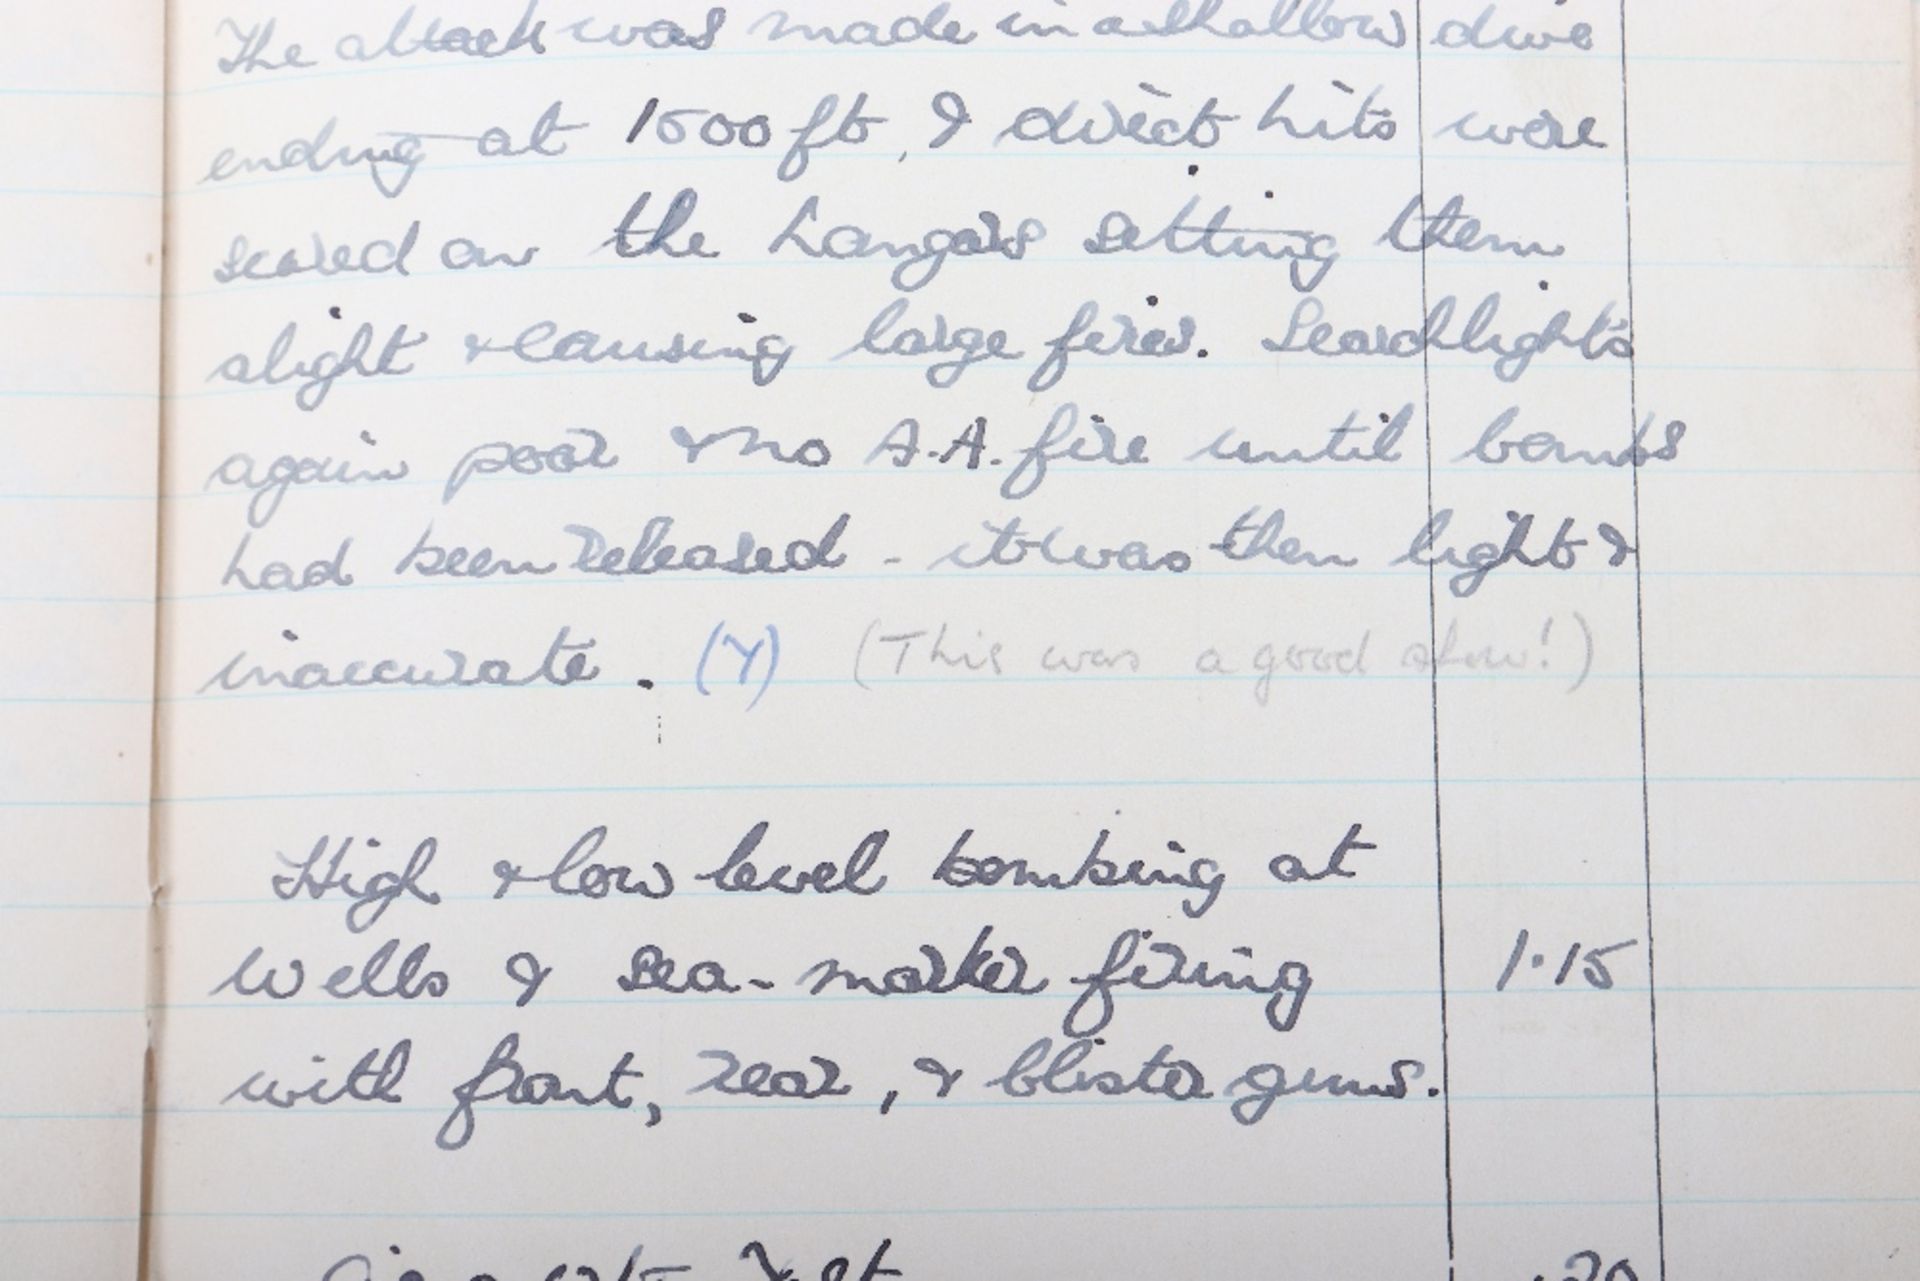 The attack was made in a shallow dive
ending at 1500 ft, & direct hits were
scored on the hangars setting them
alight & causing large fires. Searchlights
again poor & no A.A. fire until bombs
had been released - it was then light &
inaccurate. (Y) (This was a good show!)
High & low level bombing at
Wells & sea-marker firing 1.15
with front, rear, & blister guns.
Test .20